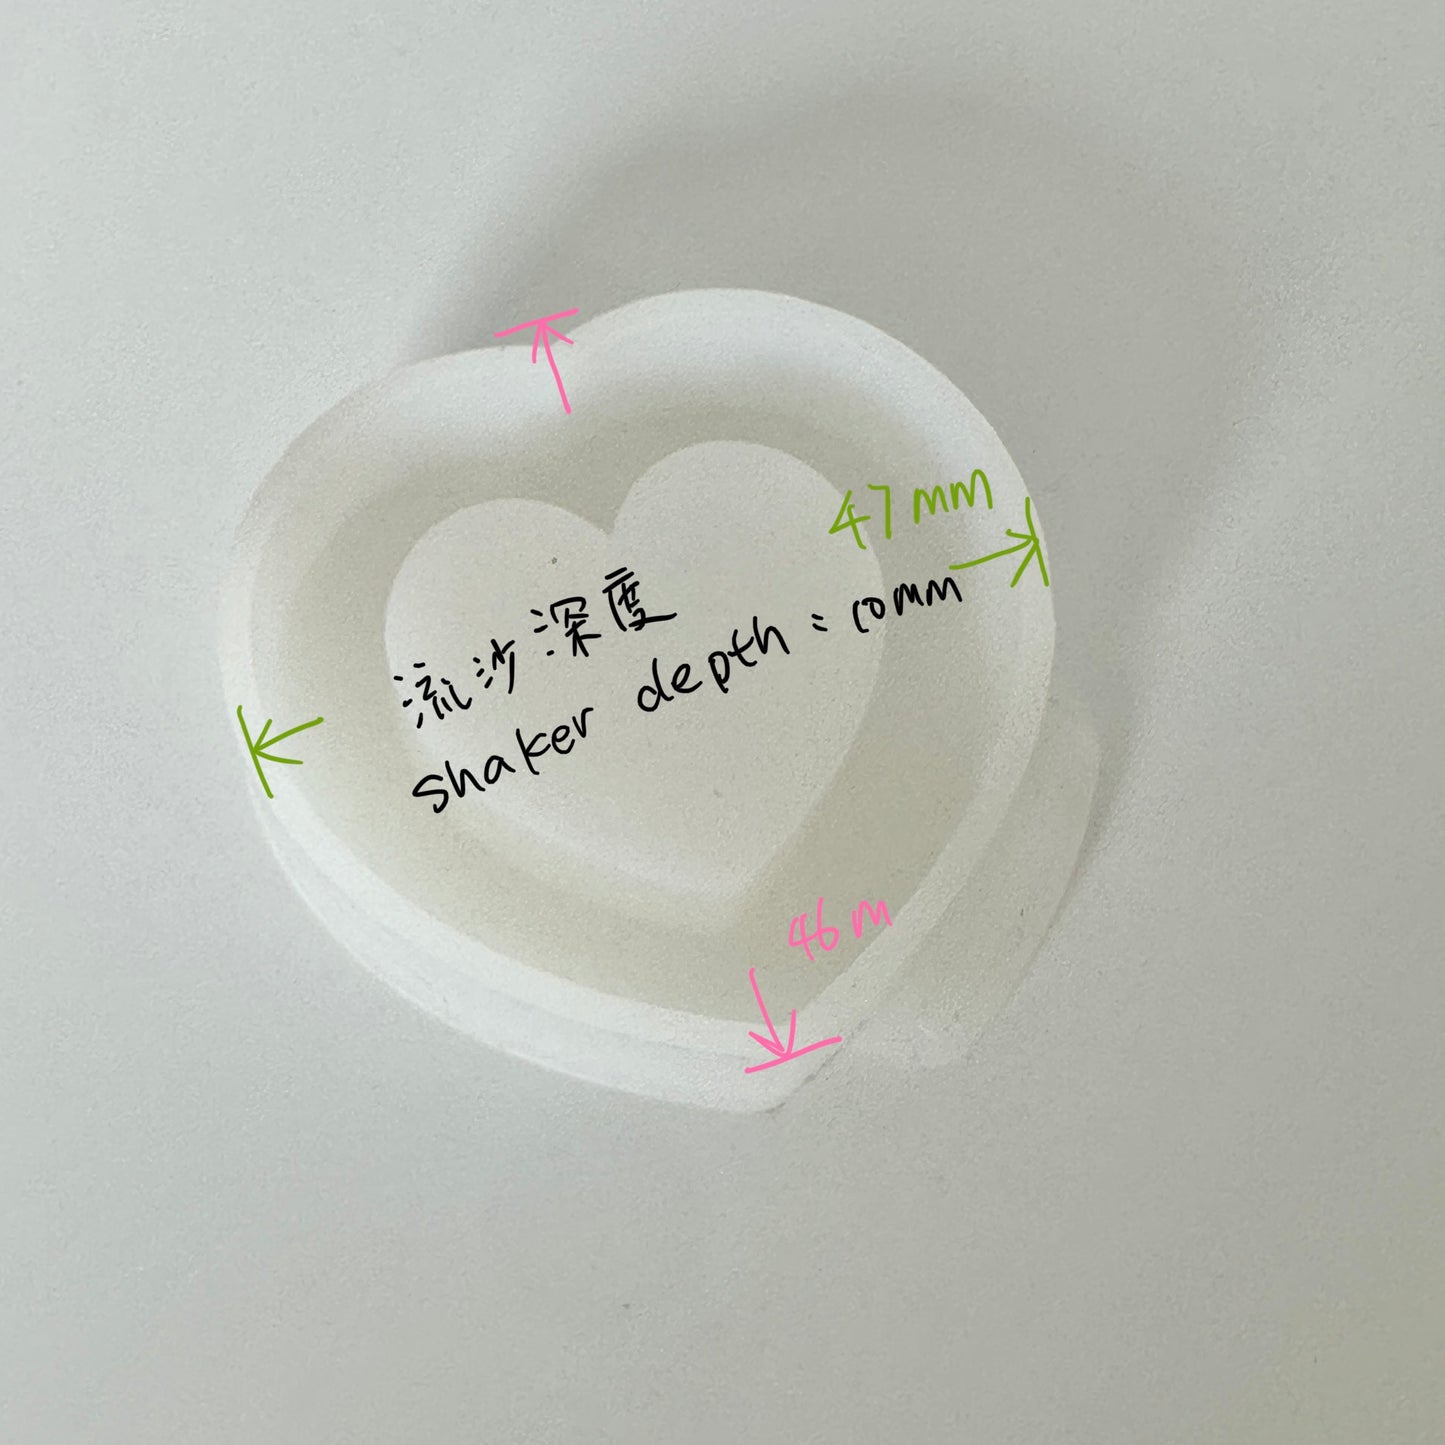 47mm
流沙深度
shaker depth = 10mm
46m